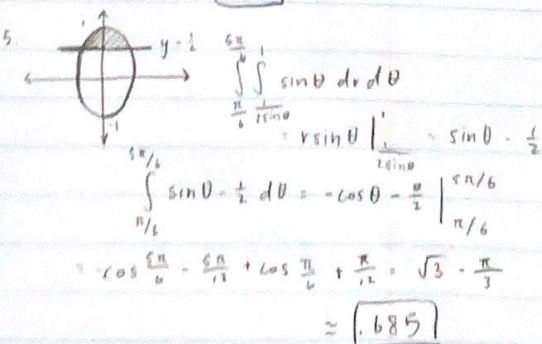 5.
1
y = 1/2
-1
∫_{π/6}^{5π/6} ∫_{1/2sinθ}^{1} sinθ dr dθ
= r sinθ |_{1/2sinθ}^{1} = sinθ - 1/2
∫_{π/6}^{5π/6} sinθ - 1/2 dθ = -cosθ - θ/2 |_{π/6}^{5π/6}
= -cos 5π/6 - 5π/12 + cos π/6 + π/12 = √3 - π/3
≈ .685